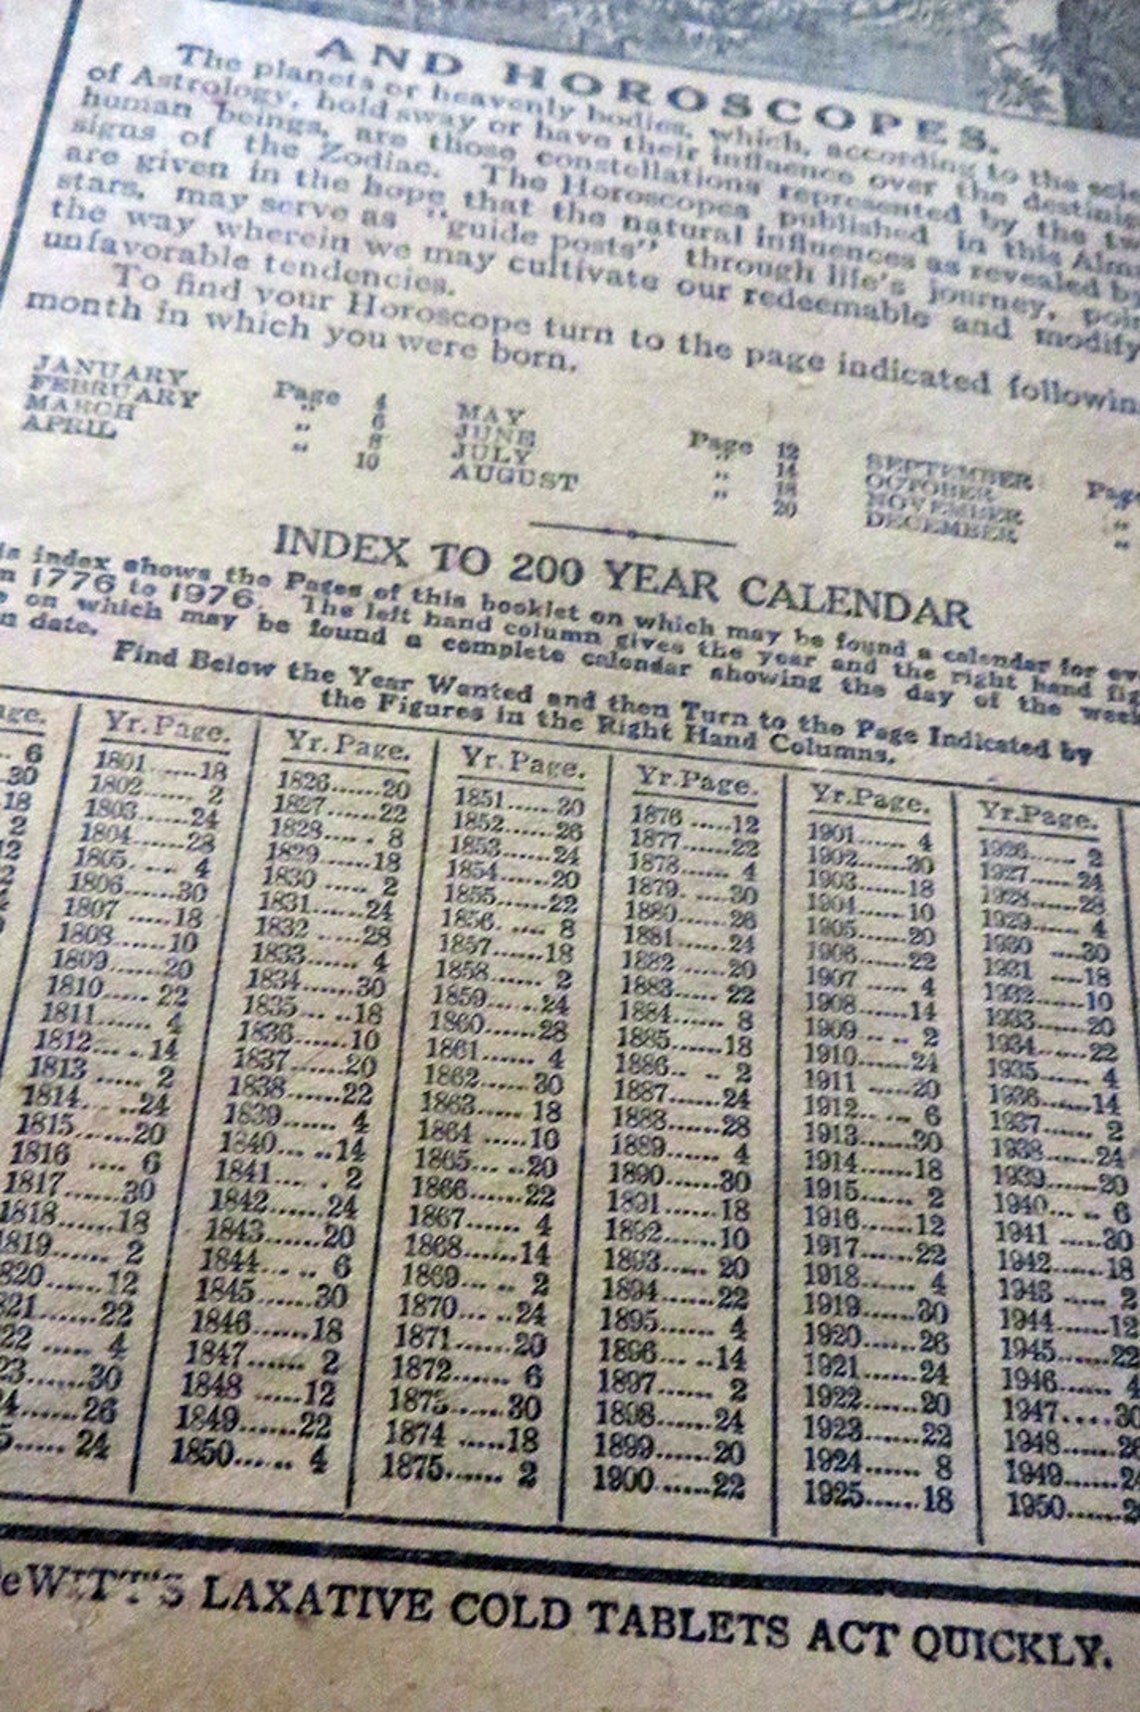 AND HOROSCOPES.
The planets or heavenly bodies, which, according to the scie
of Astrology, hold sway or have their influence over the destinie
human beings, are those constellations represented by the tw
signs of the Zodiac. The Horoscopes published in this Alma
are given in the hope that the natural influences as revealed by
stars, may serve as "guide posts" through life's journey, poin
the way wherein we may cultivate our redeemable and modify
unfavorable tendencies.
To find your Horoscope turn to the page indicated followin
month in which you were born.
JANUARY Page 4 MAY Page 12 SEPTEMBER Page
FEBRUARY " 6 JUNE " 14 OCTOBER "
MARCH " 8 JULY " 18 NOVEMBER "
APRIL " 10 AUGUST " 20 DECEMBER "
INDEX TO 200 YEAR CALENDAR
is index shows the Pages of this booklet on which may be found a calendar for eve
m 1776 to 1976. The left hand column gives the year and the right hand fig
e on which may be found a complete calendar showing the day of the week
n date.
Find Below the Year Wanted and then Turn to the Page Indicated by
the Figures in the Right Hand Columns.
age.
6
30
18
2
12
20......12
21......22
22 ..... 4
23......30
24......26
5...... 24
Yr. Page.
1801......18
1802...... 2
1803......24
1804......28
1805.... 4
1806......30
1807 .....18
1808......10
1809......20
1810..... 22
1811...... 4
1812.... .14
1813 ..... 2
1814.. ..24
1815......20
1816 .... 6
1817......30
1818......18
1819...... 2
Yr. Page.
1826......20
1827......22
1828.... . 8
1829......18
1830 ..... 2
1831......24
1832 .....28
1833...... 4
1834......30
1835... ..18
1836......10
1837......20
1838......22
1839...... 4
1840... ..14
1841.... . 2
1842......24
1843......20
1844... .. 6
1845......30
1846......18
1847...... 2
1848 .....12
1849......22
1850...... 4
Yr. Page.
1851......30
1852......26
1853......24
1854......20
1855......22
1856. .... 8
1857......18
1858...... 2
1859......24
1860......28
1861...... 4
1862......30
1863..... 18
1864 .....10
1865... ..20
1866......22
1867...... 4
1868......14
1869... .. 2
1870... ..24
1871......20
1872...... 6
1873......30
1874 .....18
1875...... 2
Yr. Page.
1876 .....12
1877......22
1878...... 4
1879. ....30
1880......26
1881......24
1882.....20
1883..... 22
1884...... 8
1885......18
1886.. .. 2
1887......24
1888......28
1889...... 4
1890......30
1891......18
1892......10
1893..... 20
1894......22
1895...... 4
1896... ..14
1897...... 2
1898......24
1899......20
1900......22
Yr. Page.
1901...... 4
1902......30
1903......18
1904......10
1905......20
1906......22
1907 ..... 4
1908......14
1909... .. 2
1910......24
1911 .....20
1912... .. 6
1913......30
1914......18
1915...... 2
1916......12
1917......22
1918...... 4
1919......30
1920......26
1921......24
1922......20
1923......22
1924...... 8
1925......18
Yr. Page.
1926...... 2
1927......24
1928......28
1929...... 4
1930 ....30
1931 ....18
1932......10
1933......20
1934......22
1935...... 4
1936......14
1937...... 2
1938......24
1939......20
1940... .. 6
1941 .....30
1942......18
1943 ..... 2
1944......12
1945......22
1946...... 4
1947....30
1948......26
1949......24
1950......2
DeWITT'S LAXATIVE COLD TABLETS ACT QUICKLY.